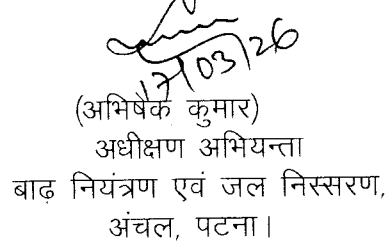 17/03/26
(अभिषेक कुमार)
अधीक्षण अभियन्ता
बाढ़ नियंत्रण एवं जल निस्सरण,
अंचल, पटना।